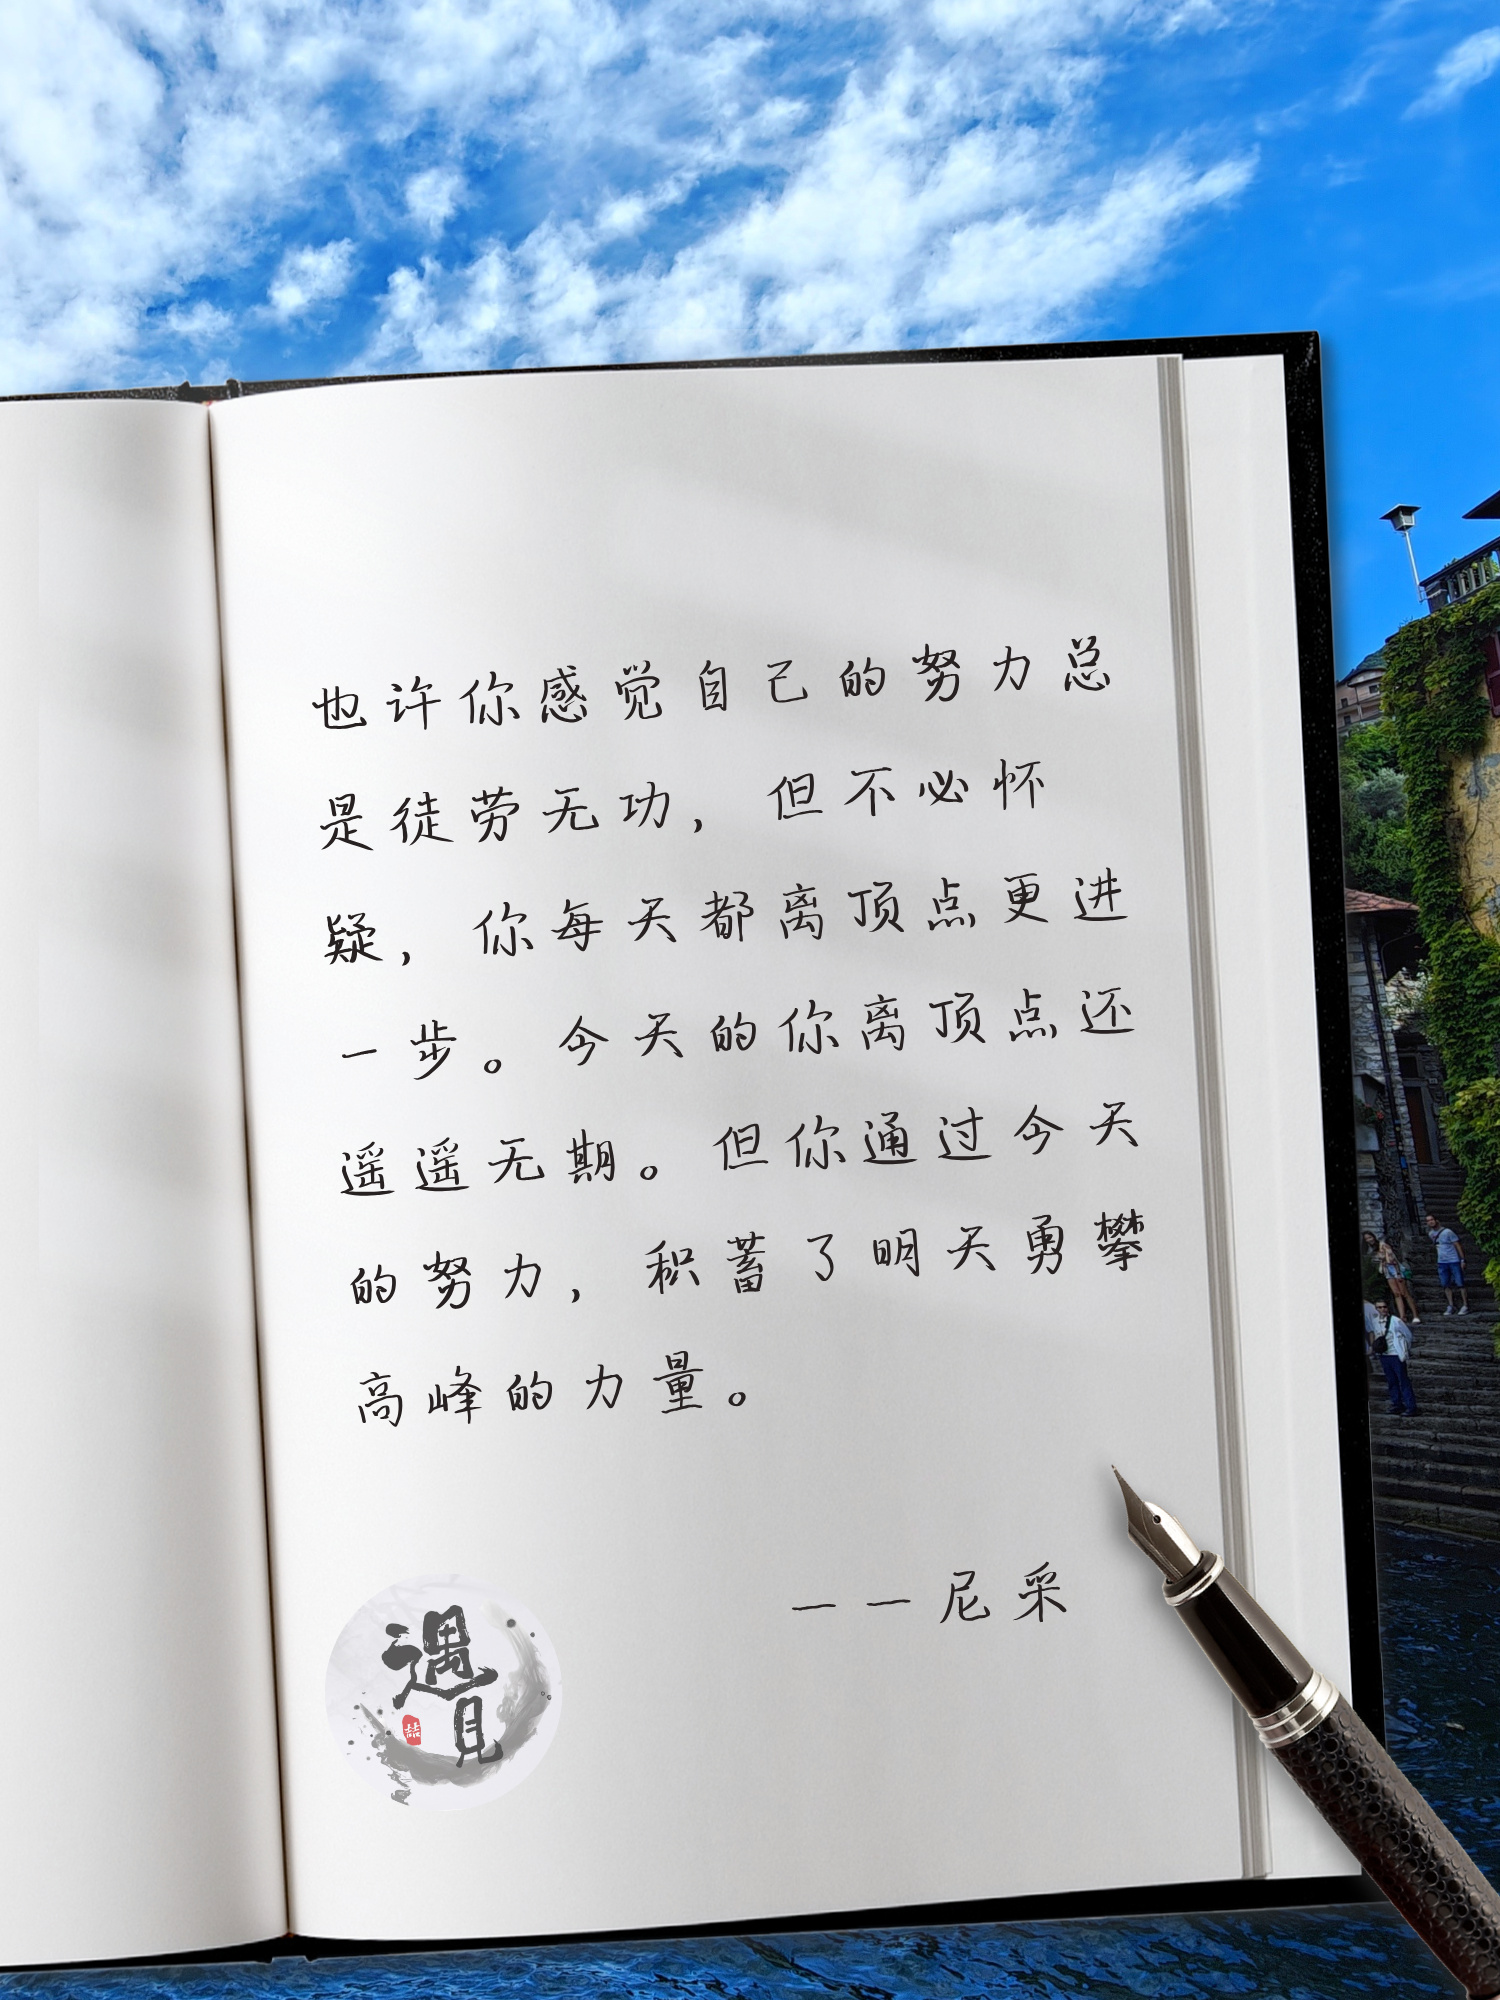 也许你感觉自己的努力总
是徒劳无功，但不必怀
疑，你每天都离顶点更进
一步。今天的你离顶点还
遥遥无期。但你通过今天
的努力，积蓄了明天勇攀
高峰的力量。
——尼采
遇
见
喆